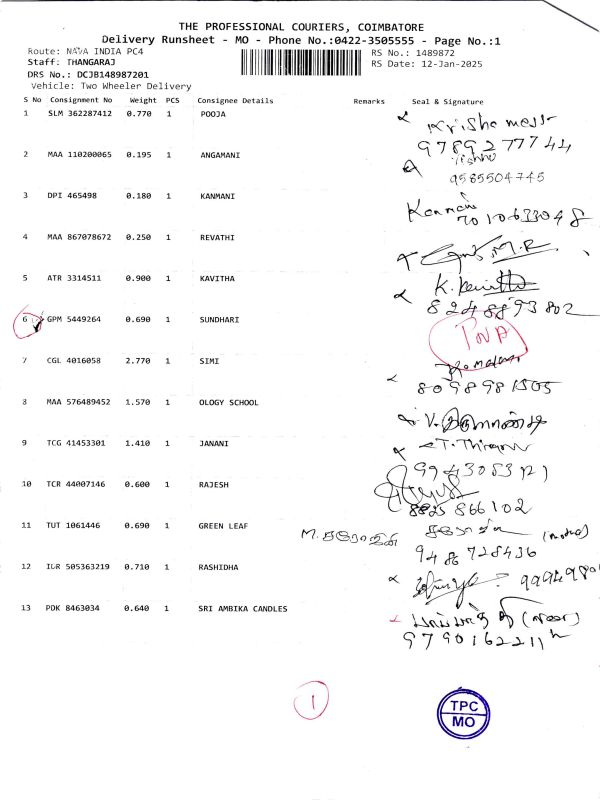 THE PROFESSIONAL COURIERS, COIMBATORE
Delivery Runsheet - MO - Phone No.:0422-3505555 - Page No.:1
Route: NAVA INDIA PC4
RS No.: 1489872
Staff: THANGARAJ
RS Date: 12-Jan-2025
DRS No.: DCJB148987201
Vehicle: Two Wheeler Delivery
S No Consignment No Weight PCS Consignee Details Remarks Seal & Signature
1 SLM 362287412 0.770 1 POOJA
9789277744
2 MAA 110200065 0.195 1 ANGAMANI
Vishnu
9585504745
3 DPI 465498 0.180 1 KANMANI
7010633048
4 MAA 867078672 0.250 1 REVATHI
5 ATR 3314511 0.900 1 KAVITHA
K. Kavitha
8248893802
6 GPM 5449264 0.690 1 SUNDHARI
7 CGL 4016058 2.770 1 SIMI
8098981505
8 MAA 576489452 1.570 1 OLOGY SCHOOL
9 TCG 41453301 1.410 1 JANANI
10 TCR 44007146 0.600 1 RAJESH
866102
11 TUT 1061446 0.690 1 GREEN LEAF M. சரோஜினி
9486728436
12 IGR 505363219 0.710 1 RASHIDHA
13 PDK 8463034 0.640 1 SRI AMBIKA CANDLES
1
TPC
MO